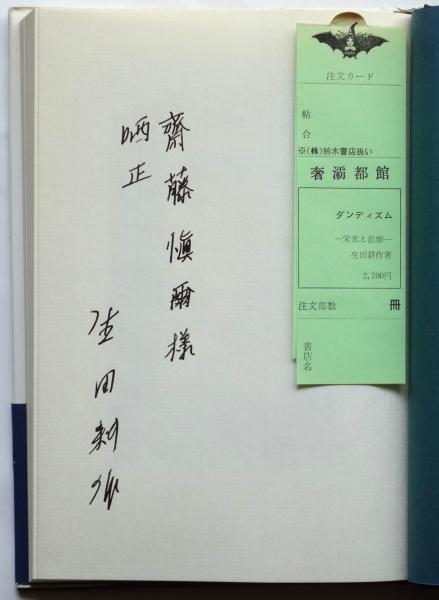 齋藤愼爾様
哂正
生田耕作
注文カード
帖合
※(株)鈴木書店扱い
奢灞都館
ダンディズム
―栄光と悲惨―
生田耕作著
2,700円
注文部数 冊
書店名